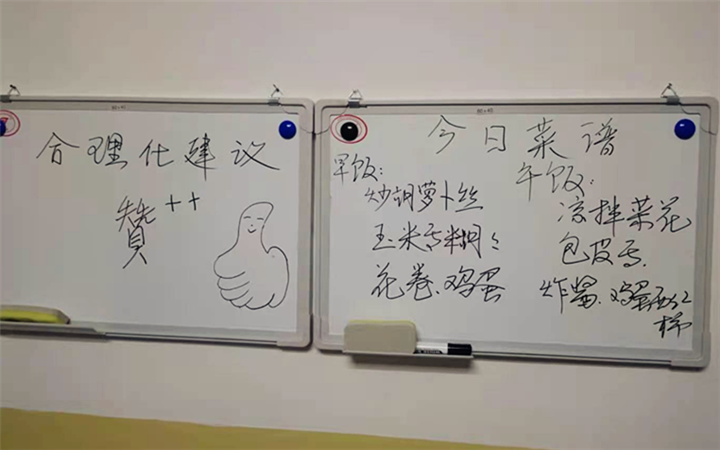 合理化建议
贊++
今日菜谱
早饭:
炒胡萝卜丝
玉米
花卷.鸡蛋
午饭:
凉拌菜花
包皮
炸酱.鸡蛋
样